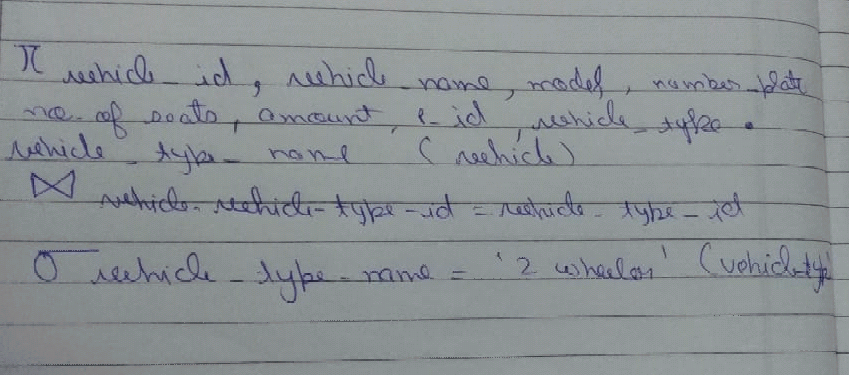 π vehicle_id, vehicle_name, model, number_plate
no_of seats, amount, e_id, vehicle_type.
vehicle_type_name (vehicle)
⋈ vehicle.vehicle_type_id = vehicle_type_id
σ vehicle_type_name = '2 wheeler' (vehicle_type